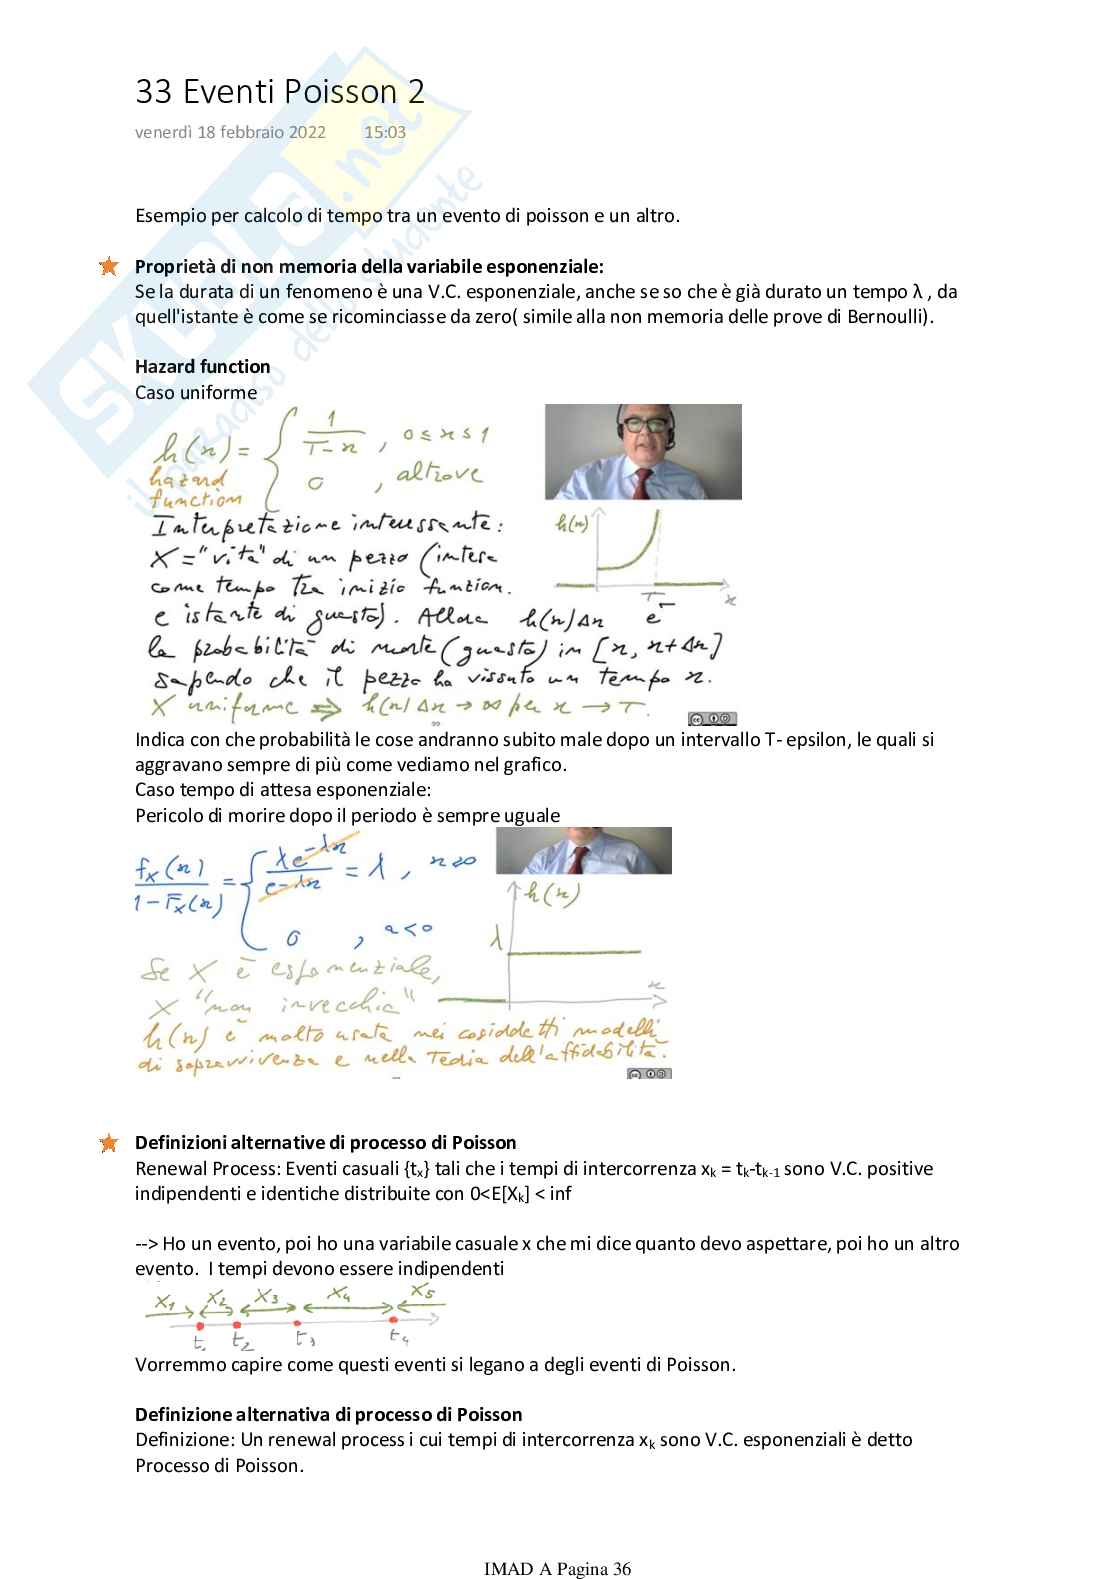 33 Eventi Poisson 2
venerdì 18 febbraio 2022 15:03
SKUOLA.net
il paradiso dello studente
Esempio per calcolo di tempo tra un evento di poisson e un altro.
Proprietà di non memoria della variabile esponenziale:
Se la durata di un fenomeno è una V.C. esponenziale, anche se so che è già durato un tempo λ , da
quell'istante è come se ricominciasse da zero( simile alla non memoria delle prove di Bernoulli).
Hazard function
Caso uniforme
h(x) = { 1/(T-x) , 0≤x≤1
0 , altrove
hazard
function
Interpretazione interessante:
X="vita" di un pezzo (intesa
come tempo tra inizio funzion.
e istante di guasto). Allora h(x)Δx è
la probabilità di morte (guasto) in [x, x+Δx]
sapendo che il pezzo ha vissuto un tempo x.
X uniforme ⇒ h(x)Δx → ∞ per x → T.
h(x)
T
x
Indica con che probabilità le cose andranno subito male dopo un intervallo T- epsilon, le quali si
aggravano sempre di più come vediamo nel grafico.
Caso tempo di attesa esponenziale:
Pericolo di morire dopo il periodo è sempre uguale
fx(x)/(1-Fx(x)) = { λe^-λx/e^-λx = λ , x≥0
0 , x<0
h(x)
λ
x
Se X è esponenziale,
X "non invecchia"
h(x) è molto usata nei cosiddetti modelli
di sopravvivenza e nella Teoria dell'affidabilità.
Definizioni alternative di processo di Poisson
Renewal Process: Eventi casuali {tx} tali che i tempi di intercorrenza xk = tk-tk-1 sono V.C. positive
indipendenti e identiche distribuite con 0<E[Xk] < inf
--> Ho un evento, poi ho una variabile casuale x che mi dice quanto devo aspettare, poi ho un altro
evento. I tempi devono essere indipendenti
X1 X2 X3 X4 X5
t1 t2 t3 t4
Vorremmo capire come questi eventi si legano a degli eventi di Poisson.
Definizione alternativa di processo di Poisson
Definizione: Un renewal process i cui tempi di intercorrenza xk sono V.C. esponenziali è detto
Processo di Poisson.
IMAD A Pagina 36